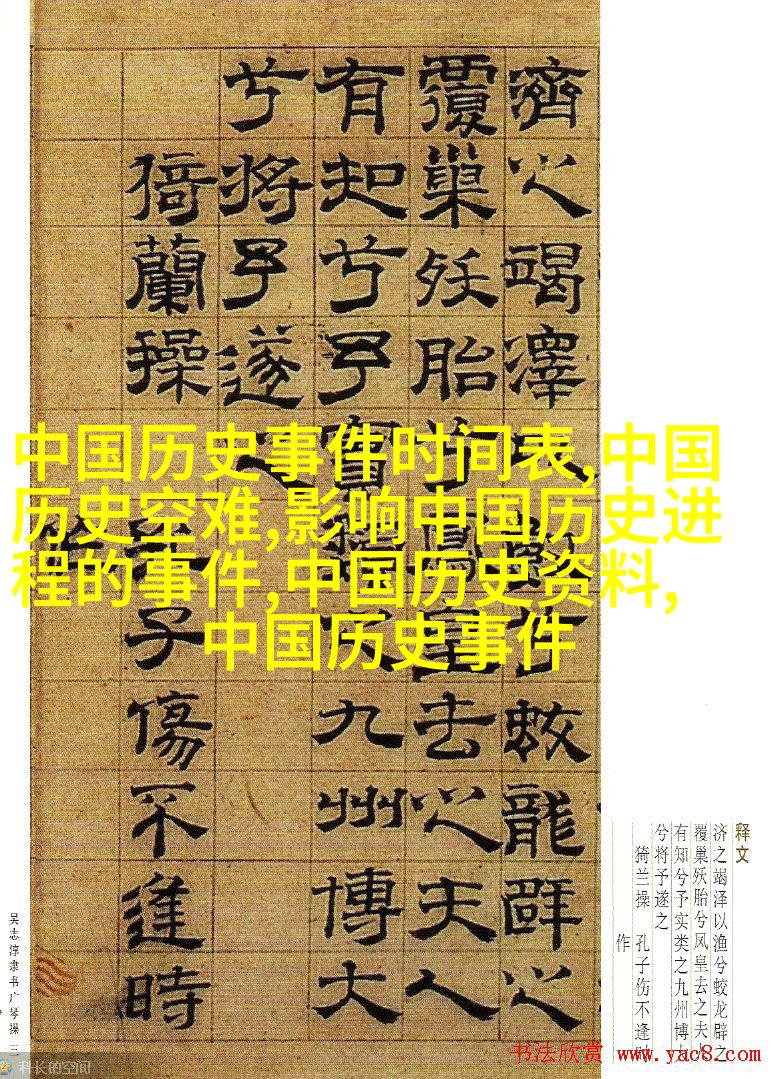 濟之竭澤以漁兮蛟龍辟之
覆巢殀胎兮鳳皇去之夫人
有知兮予實類之九州博大
兮將予遂之
猗蘭操 孔子傷不逢時
作
中国历史事件时间表,中国
历史空难,影响中国历史进
程的事件,中国历史资料,
中国历史事件
释文
济之竭泽以渔兮蛟龙辟之
覆巢殀胎兮凤皇去之夫人
有知兮予实类之九州博
兮将予遂之
猗兰操 孔子伤不逢时
作
吴志淳隶书广琴操 三
科长的空间
书法欣赏 www.yac8.com